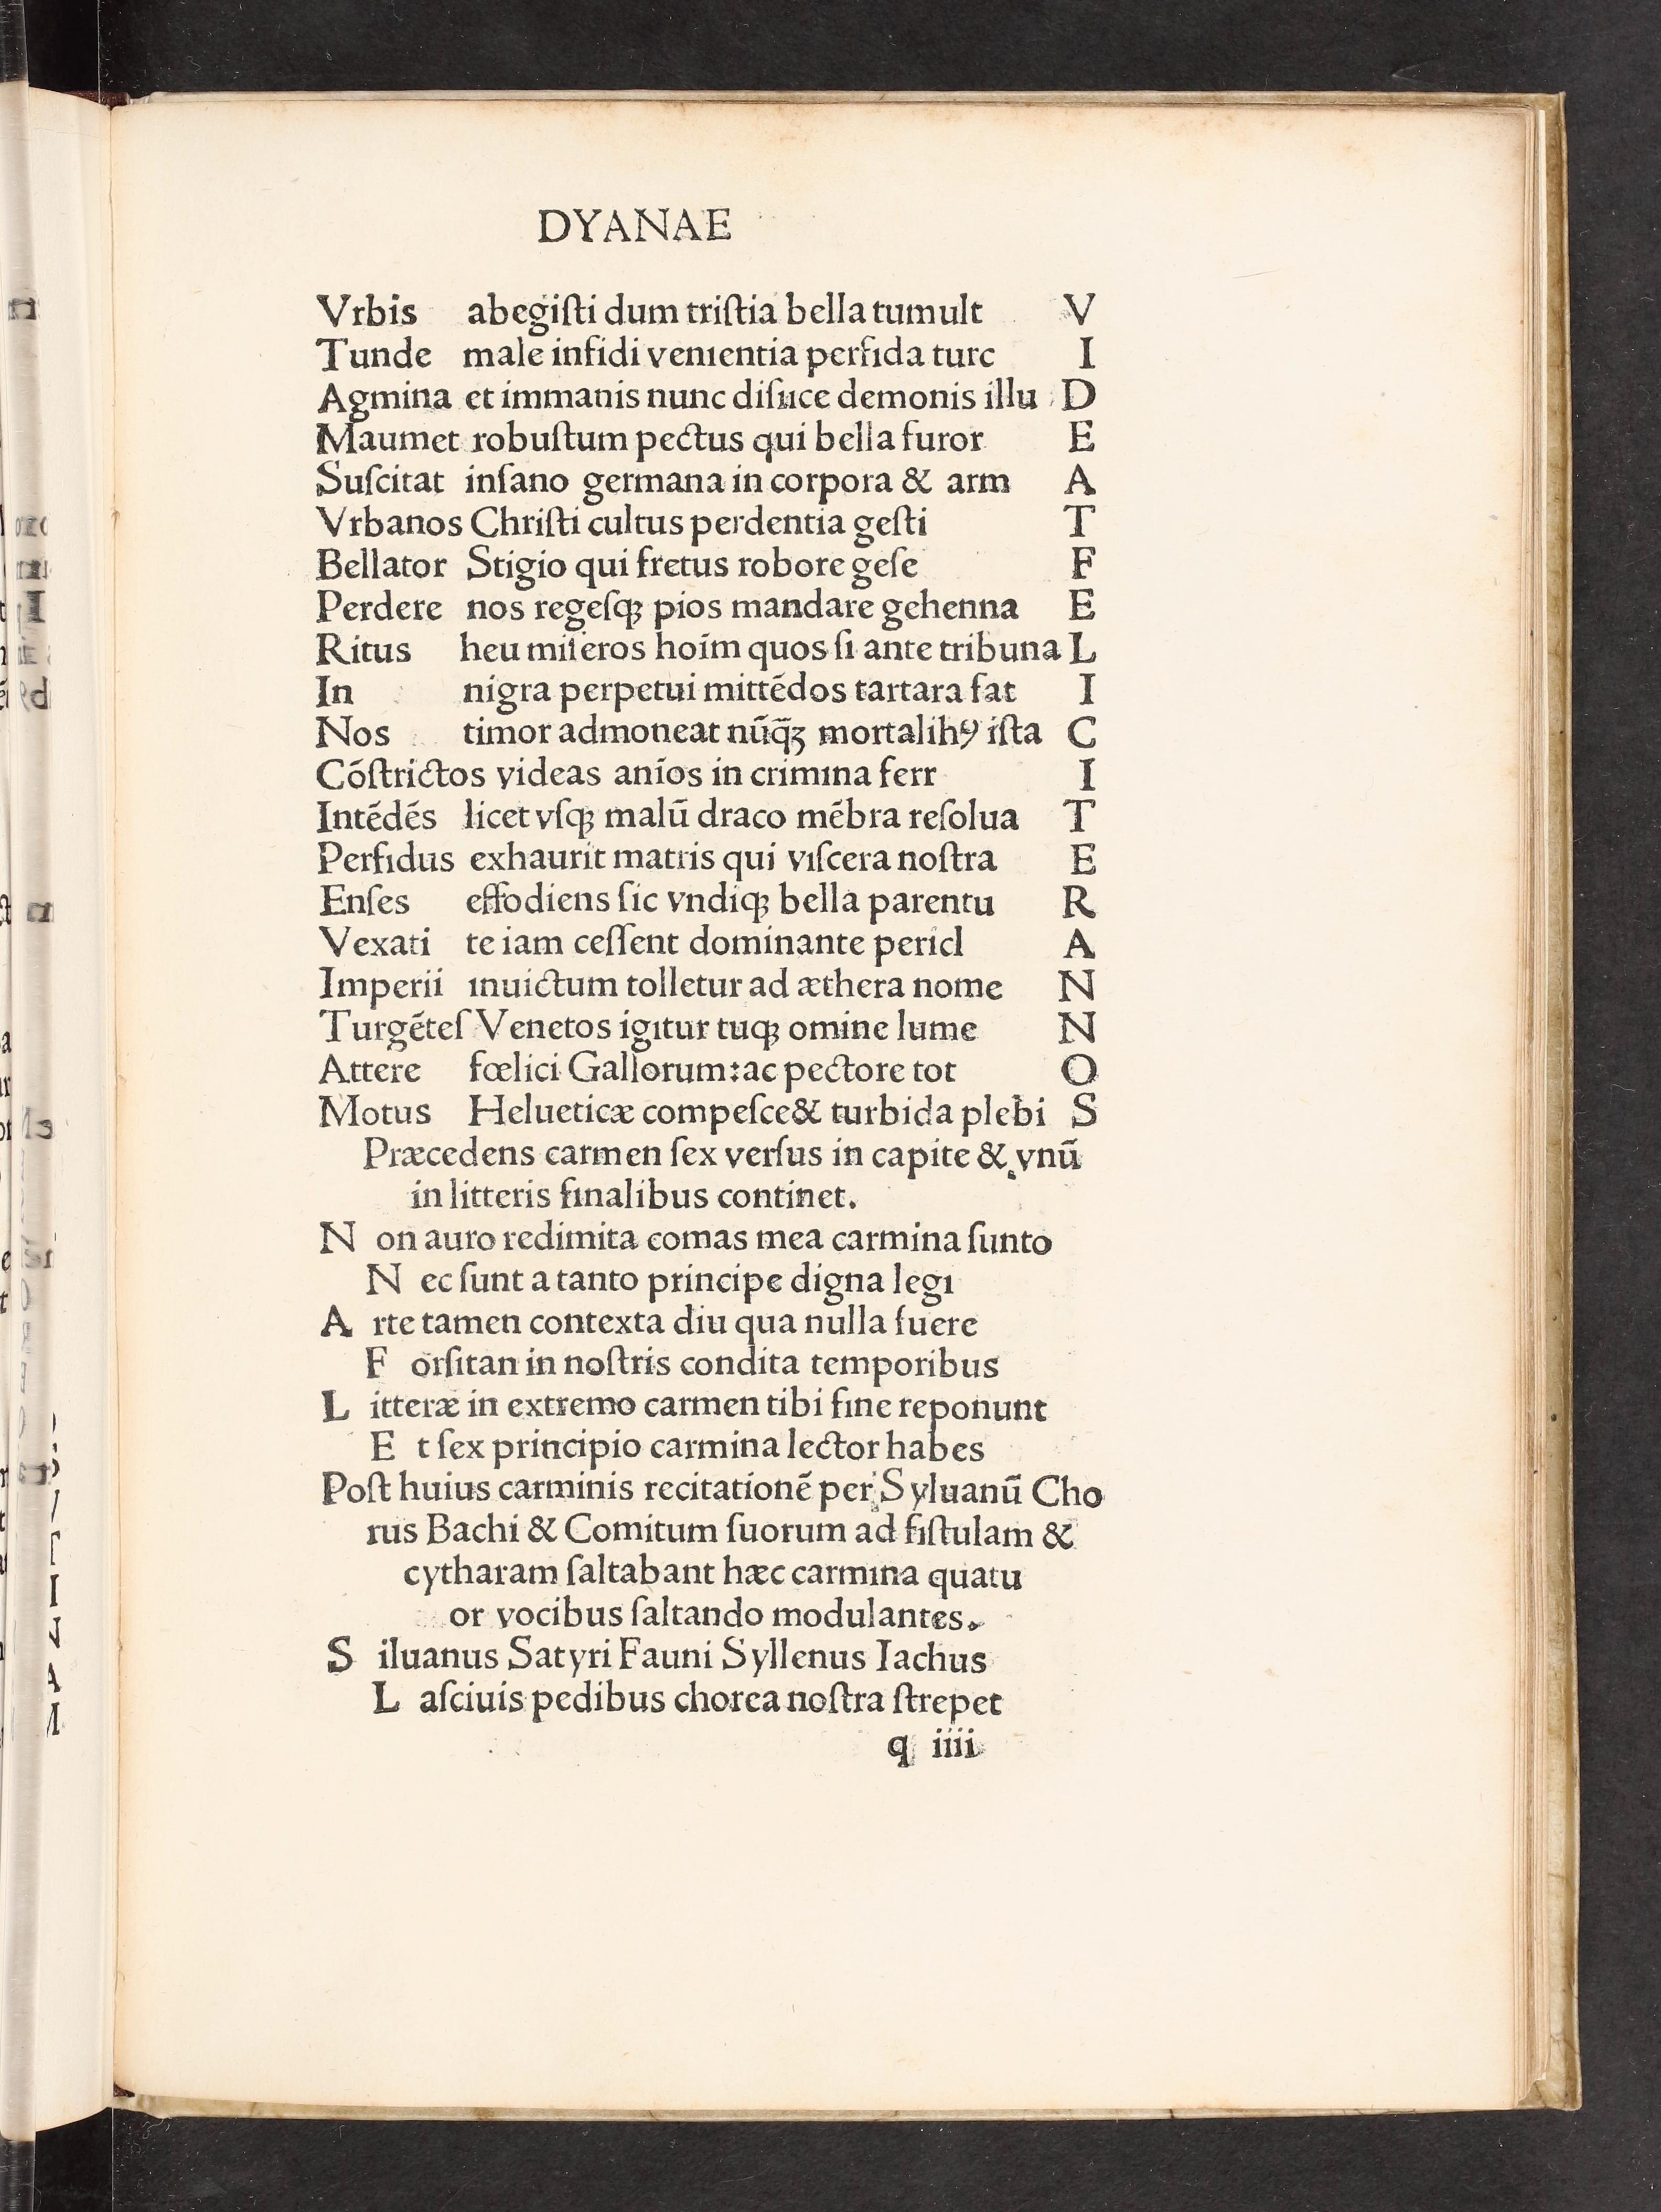 DYANAE
Vrbis abegiſti dum triſtia bella tumult V
Tunde male infidi venientia perfida turc I
Agmina et immanis nunc diſiice demonis illu D
Maumet robuſtum pectus qui bella furor E
Suſcitat inſano germana in corpora & arm A
Vrbanos Chriſti cultus perdentia geſti T
Bellator Stigio qui fretus robore geſe F
Perdere nos regeſqꝫ pios mandare gehenna E
Ritus heu miſeros hoīm quos ſi ante tribuna L
In nigra perpetui mittēdos tartara fat I
Nos timor admoneat nūq̄ꝫ mortalihꝰ iſta C
Cōſtrictos videas anīos in crimina ferr I
Intēdēs licet vſqꝫ malū draco mēbra reſolua T
Perfidus exhaurit matris qui viſcera noſtra E
Enſes effodiens ſic vndiqꝫ bella parentu R
Vexati te iam ceſſent dominante pericl A
Imperii inuictum tolletur ad æthera nome N
Turgēteſ Venetos igitur tuqꝫ omine lume N
Attere fœlici Gallorum:ac pectore tot O
Motus Helueticæ compeſce& turbida plebi S
Præcedens carmen ſex verſus in capite & vnū
in litteris finalibus continet.
N on auro redimita comas mea carmina ſunto
N ec ſunt a tanto principe digna legi
A rte tamen contexta diu qua nulla fuere
F orſitan in noſtris condita temporibus
L itteræ in extremo carmen tibi fine reponunt
E t ſex principio carmina lector habes
Poſt huius carminis recitationē per Syluanū Cho
rus Bachi & Comitum ſuorum ad fiſtulam &
cytharam ſaltabant hæc carmina quatu
or vocibus ſaltando modulantes.
S iluanus Satyri Fauni Syllenus Iachus
L aſciuis pedibus chorea noſtra ſtrepet
q iiii